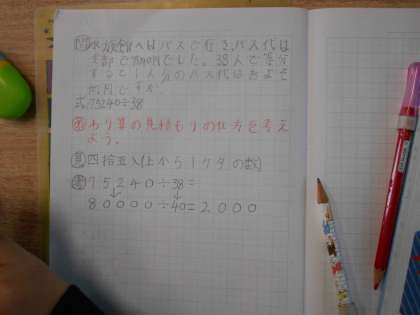 問水族館へはバスで行き、バス代は
全部で75240円でした。38人で等分
すると1人分のバス代はおよそ
何円ですか。
式75240÷38
めわり算の見積もりの仕方を考え
よう。
見四捨五入(上から1ケタの数)
考75240÷38=
80000÷40=2000